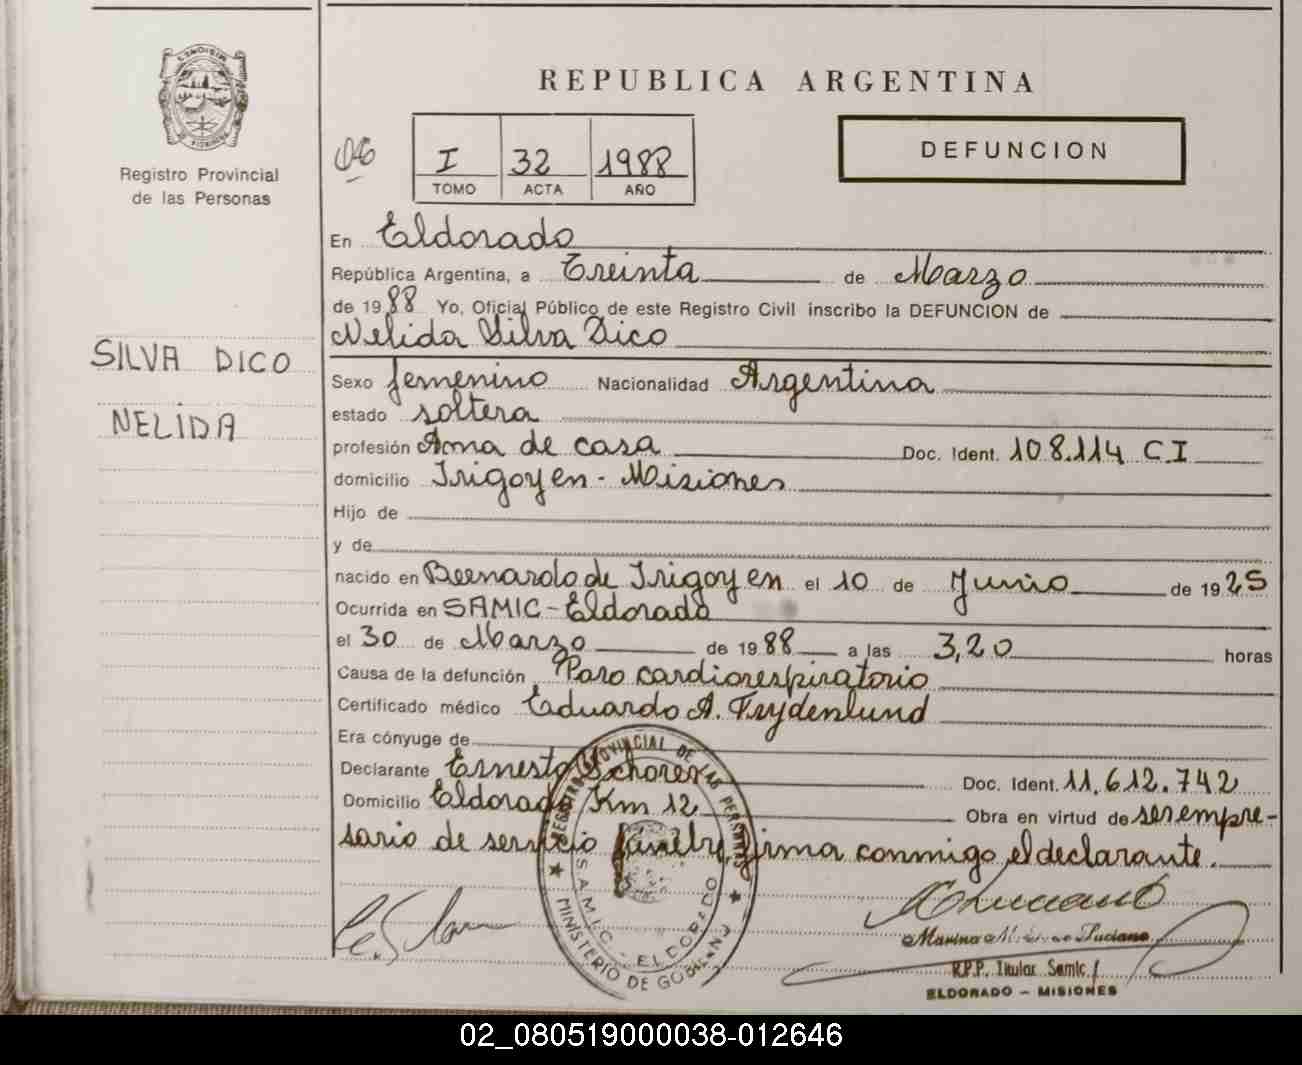 MISIONES
Registro Provincial
de las Personas
SILVA DICO
NELIDA
REPUBLICA ARGENTINA
I 32 1988
TOMO ACTA AÑO
DEFUNCION
En Eldorado
República Argentina, a Treinta de Marzo
de 1988 Yo, Oficial Público de este Registro Civil inscribo la DEFUNCION de
Nelida Silva Dico
Sexo femenino Nacionalidad Argentina
estado soltera
profesión Ama de casa Doc. Ident. 108.114 CI
domicilio Irigoyen - Misiones
Hijo de
y de
nacido en Bernardo de Irigoyen el 10 de Junio de 1925
Ocurrida en SAMIC - Eldorado
el 30 de Marzo de 1988 a las 3,20 horas
Causa de la defunción Paro cardiorespiratorio
Certificado médico Eduardo A. Frydenlund
Era cónyuge de
Declarante Ernesto Schorer Doc. Ident. 11.612.742
Domicilio Eldorado Km 12 Obra en virtud de ser empre-
sario de servicio fúnebre, firma conmigo el declarante.
REGISTRO PROVINCIAL DE LAS PERSONAS
S.A.M.I.C. - ELDORADO
MINISTERIO DE GOBIERNO
Marina Luciano
R.P.P. Titular Samic
ELDORADO - MISIONES
02_080519000038-012646